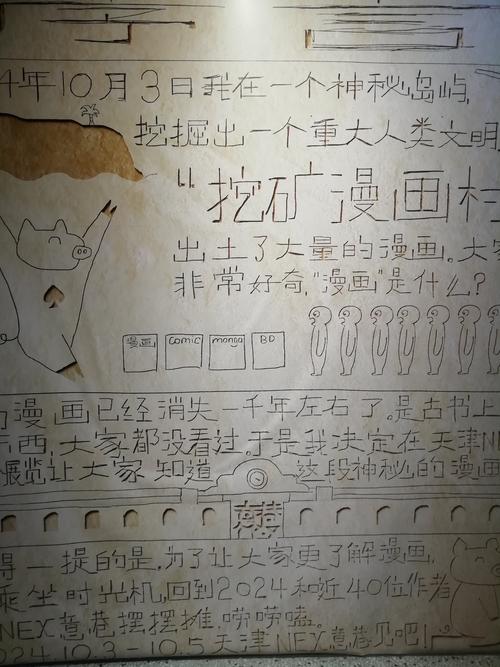 4年10月3日我在一个神秘岛屿,
挖掘出一个重大人类文明
“挖矿漫画村
出土了大量的漫画。大家
非常好奇,“漫画”是什么?
漫画 comic manga BD
漫画已经消失一千年左右了。是古书上
东西,大家都没看过。于是我决定在天津N
展览让大家知道 这段神秘的漫画
意巷
得一提的是,为了让大家更了解漫画,
乘坐时光机,回到2024和近40位作者
NEX意巷摆摆摊,唠唠嗑。
24 10.3-10.5天津NEX意巷见吧!